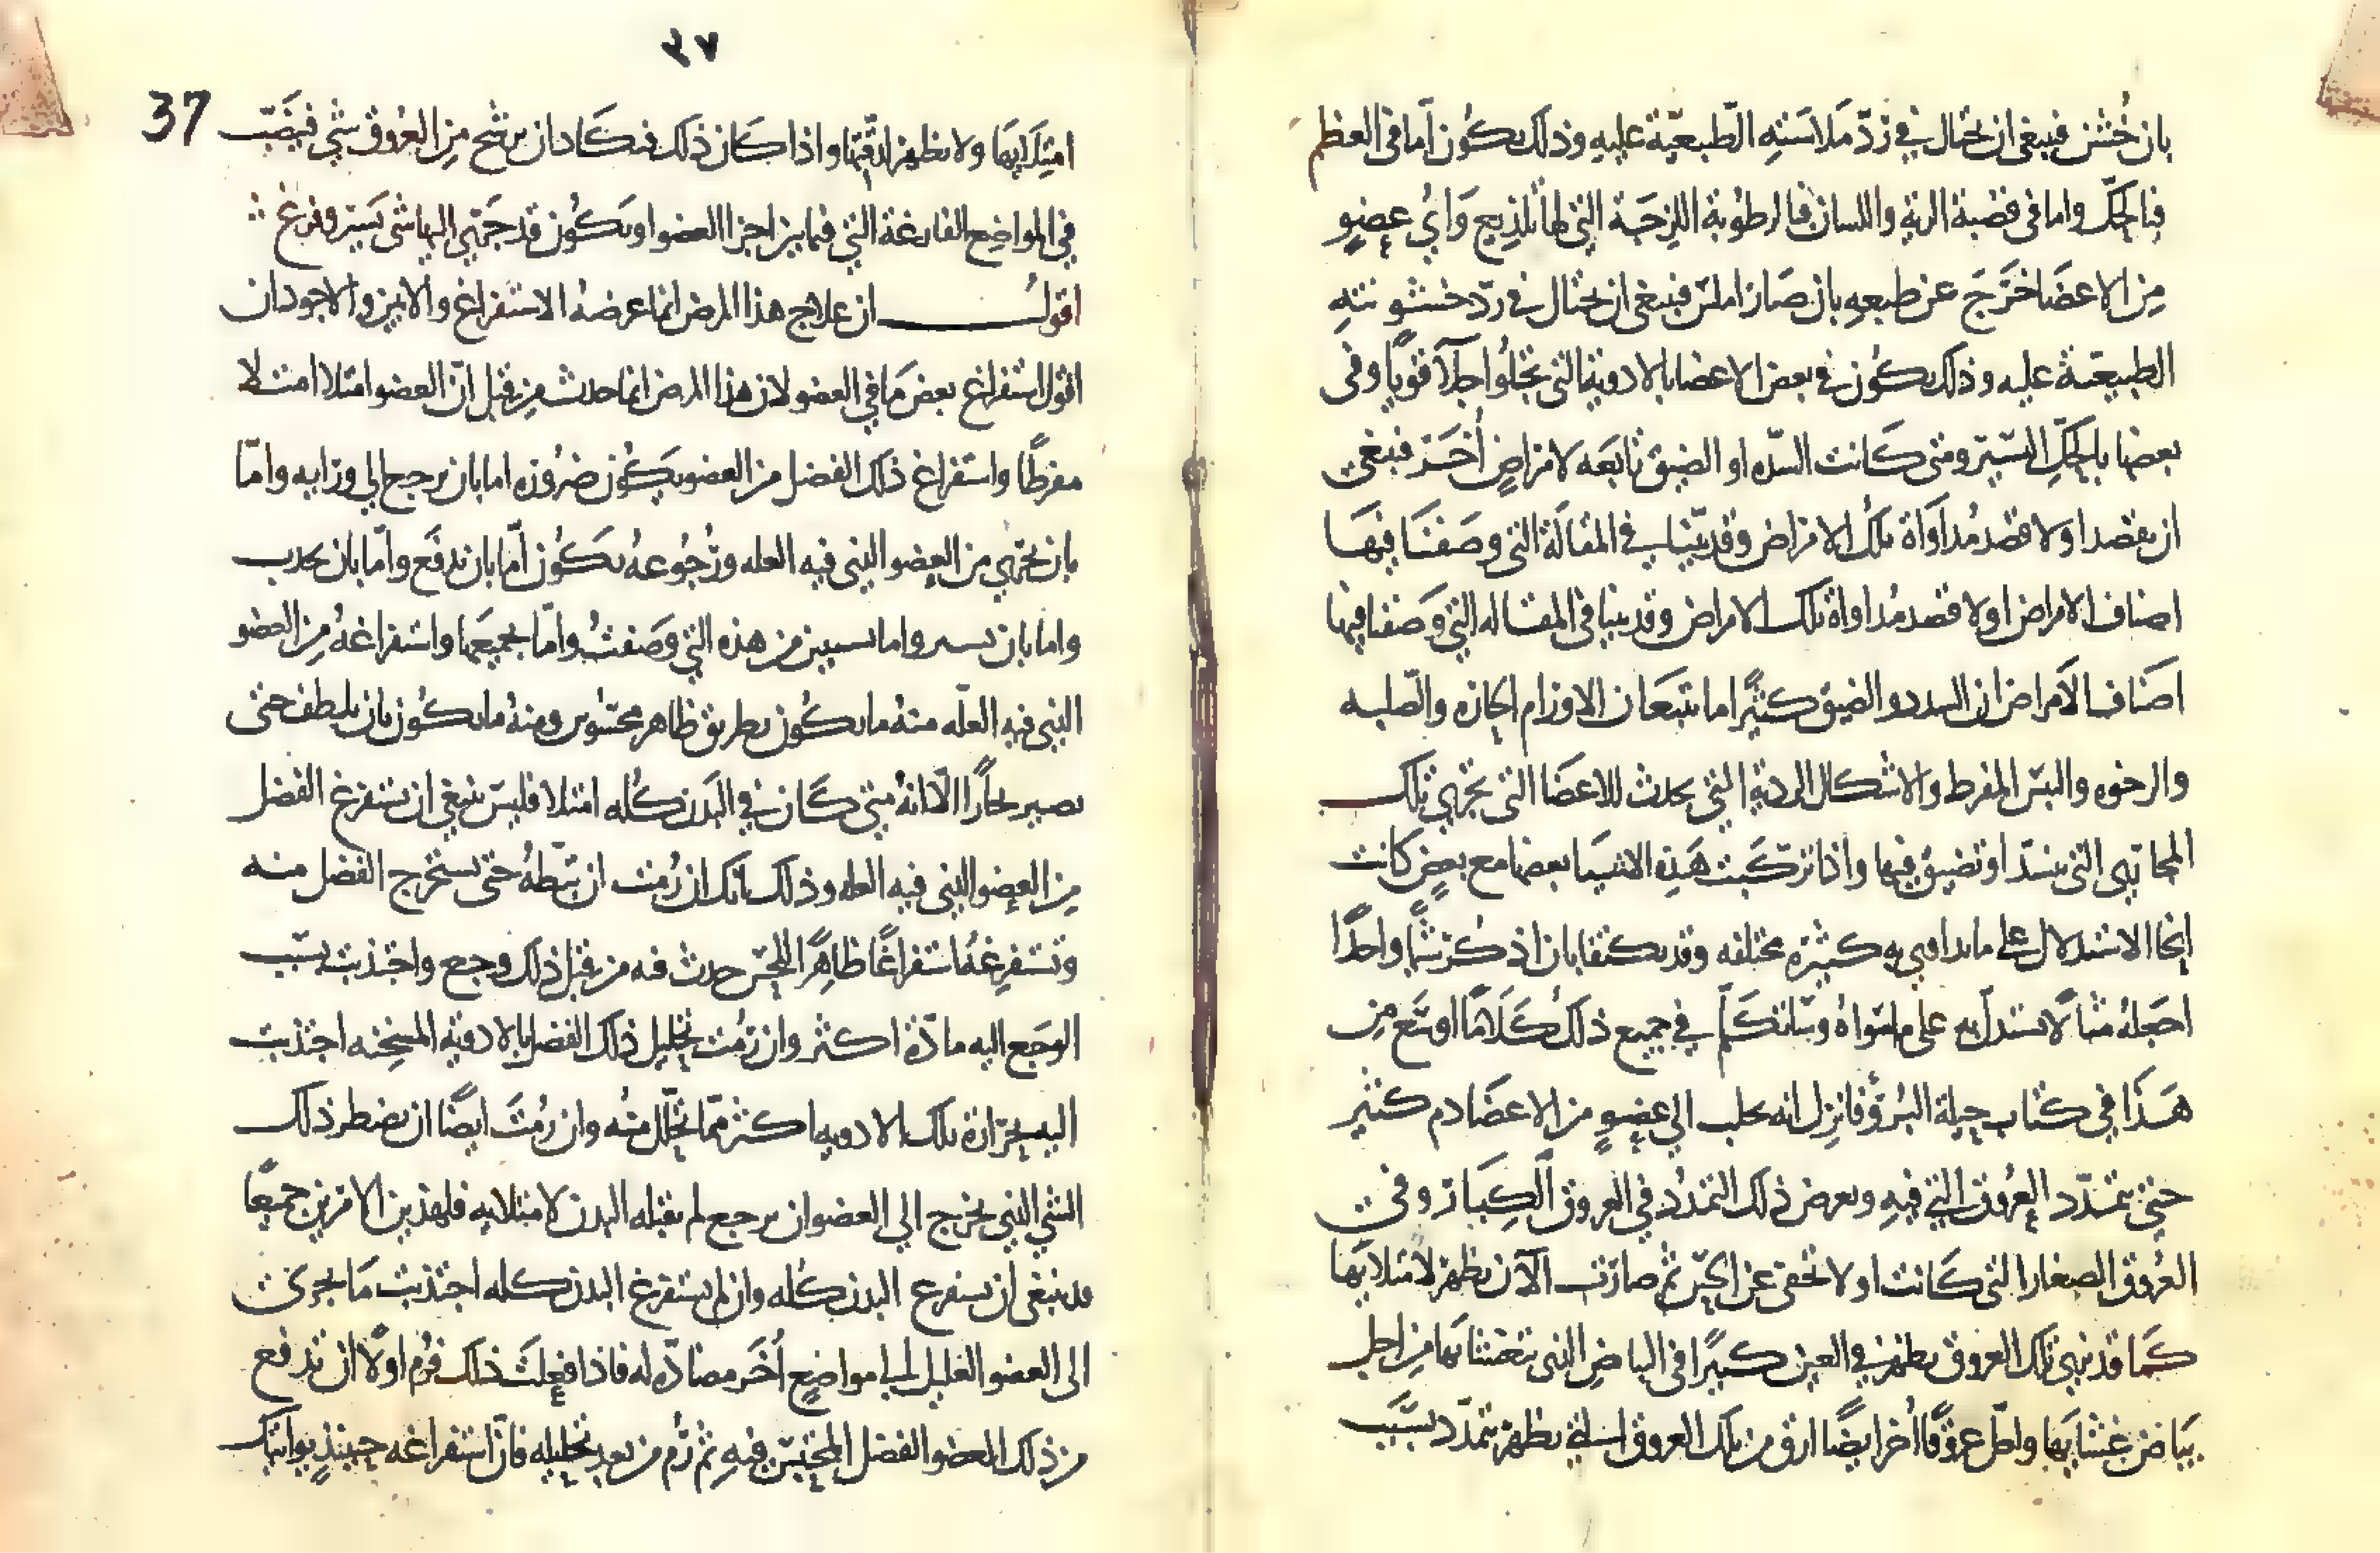 بان خشن فينبغي ان يحتال في ردّ ملاسته الطبيعيّة عليه وذلك يكون اما في العظم
فبالحكّ واما في قصبة الرية واللسان فبالرطوبة اللزجة التي لها تلذيع وايُّ عضوٍ
من الاعضا خرج عن طبعه بان صار املس فينبغي ان يحتال في ردّ خشونته
الطبيعيّة عليه وذلك يكون في بعض الاعضا بالادوية التي تجلوا جلآً قويًا وفي
بعضها بالحكّ اليسير ومتى كانت السدّه او الضيق تابعه لامراضٍ أخر فينبغي
ان يقصد اولا قصد مُداواة تلك الامراض وقد بيّنا في المقالة التي وصفنا فيها
اصناف الامراض اولا قصد مُداواة تلك الامراض وقد بينا في المقاله التي وصفنا فيها
اصناف الامراض ان السدد والضيق كثيرًا ما تتبعان الاورام الحاره والصلبه
والرخوه واليبس المفرط والاشكال الردية التي تحدث للاعضا التي تحوي تلك
المجاري التي تنسدّ او تضيق فيها واذا تركبت هذه الاشيا بعضها مع بعضٍ كانت
انحا الاستدلال على ما يداوي به كثيرة مختلفه وقد يكتفا بان اذكر شيًا واحدًا
اجعله مثالًا يستدلّ به على ما سواهُ وسانكلّم في جميع ذلك كلامًا اوسع من
هذا في كتاب حيلة البرؤ فانزل انه تحلب الى عضوٍ من الاعضا دم كثير
حتى تمدّد العُروق التي فيه ويعرض ذلك التمدُد في العروق الكبار وفي
العُروق الصغار التي كانت اولا تخفى عن الحسّ ثم صارت الآن تظهر لامتلايها
كما قد نرى تلك العروق تظهر في العين كثيرًا في البياض الذي تتغشّاها من اجل
بياض غشايها ولعل عروقًا أخر ايضًا ارق من تلك العروق التي تظهر تمدّد بسبب
٣٧
37
امتلايها ولا تظهر لدقّتها واذا كان ذلك فيكاد ان يرشح من العُروق شي فينصّب
في المواضع الفارغة التي فيما بين اجزا العضو او يكون قد جرى اليها شي يسير وفرغ
اقول ان علاج هذا المرض انما غرضهُ الاستفراغ والابين والاجود ان
اقول استفراغ بعض ما في العضو لان هذا المرض انما حدث من قبل انّ العضو امتلا امتلا
مفرطًا واستفراغ ذلك الفضل من العضو يكون ضرُوره اما بان يرجع الى ورايه وامّا
بان يجري من العضو الذي فيه العله ورجُوعهُ يكون أمّا بان يدفع وامّا بان يجذب
واما بان يسير واما بسببين من هذه التي وصفتُ وامّا بجميعها واستفراغهُ من العضو
الذي فيه العلّه منهُ ما يكون بطريق ظاهر محسُوس ومنهُ ما يكون بان يلطف حتى
يصير بخارًا الّا انهُ متى كان في البدن كله امتلا فليس ينبغي ان يستفرغ الفضل
من العضو الذي فيه العله وذلك بانك ان رُمت ان تبطّهُ حتى يستخرج الفضل منه
وتستفرغهُ استفراغًا ظاهرًا للحسّ حدث فيه من قبل ذلك وجع واجتذبت بسبب
الوجع اليه مادّة اكثر وان رُمت تحليل ذلك الفضل بالادوية المسخنه اجتذبت
اليه بحرّارة تلك الادويه اكثر ممّا تحلّل منهُ وان رُمتَ ايضًا ان تضطر ذلك
الشي الذي يخرج الى العضو ان يرجع لم يقبله البدن لامتلايه فلهذين الامرين جميعًا
قد ينبغي ان يستفرغ البدن كله وان لم يستفرغ البدن كله اجتذبت ما يجري
الى العضو العليل الى مواضعٍ أخر مضادّه له فاذا فعلتَ ذلك فرُم اولًا ان تدفع
من ذلك العضو الفضل المحتبس فيه ثم رُم من بعد تحليله فانّ استفراغه حينيذٍ يواتيك